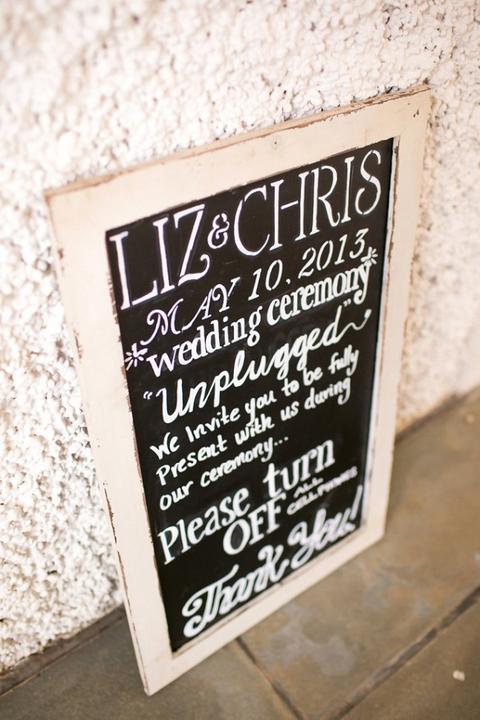 LIZ & CHRIS
MAY 10, 2013
wedding ceremony
"Unplugged"
We Invite you to be fully
Present with us during
our ceremony...
Please turn
OFF ALL CELLPHONES
Thank You!